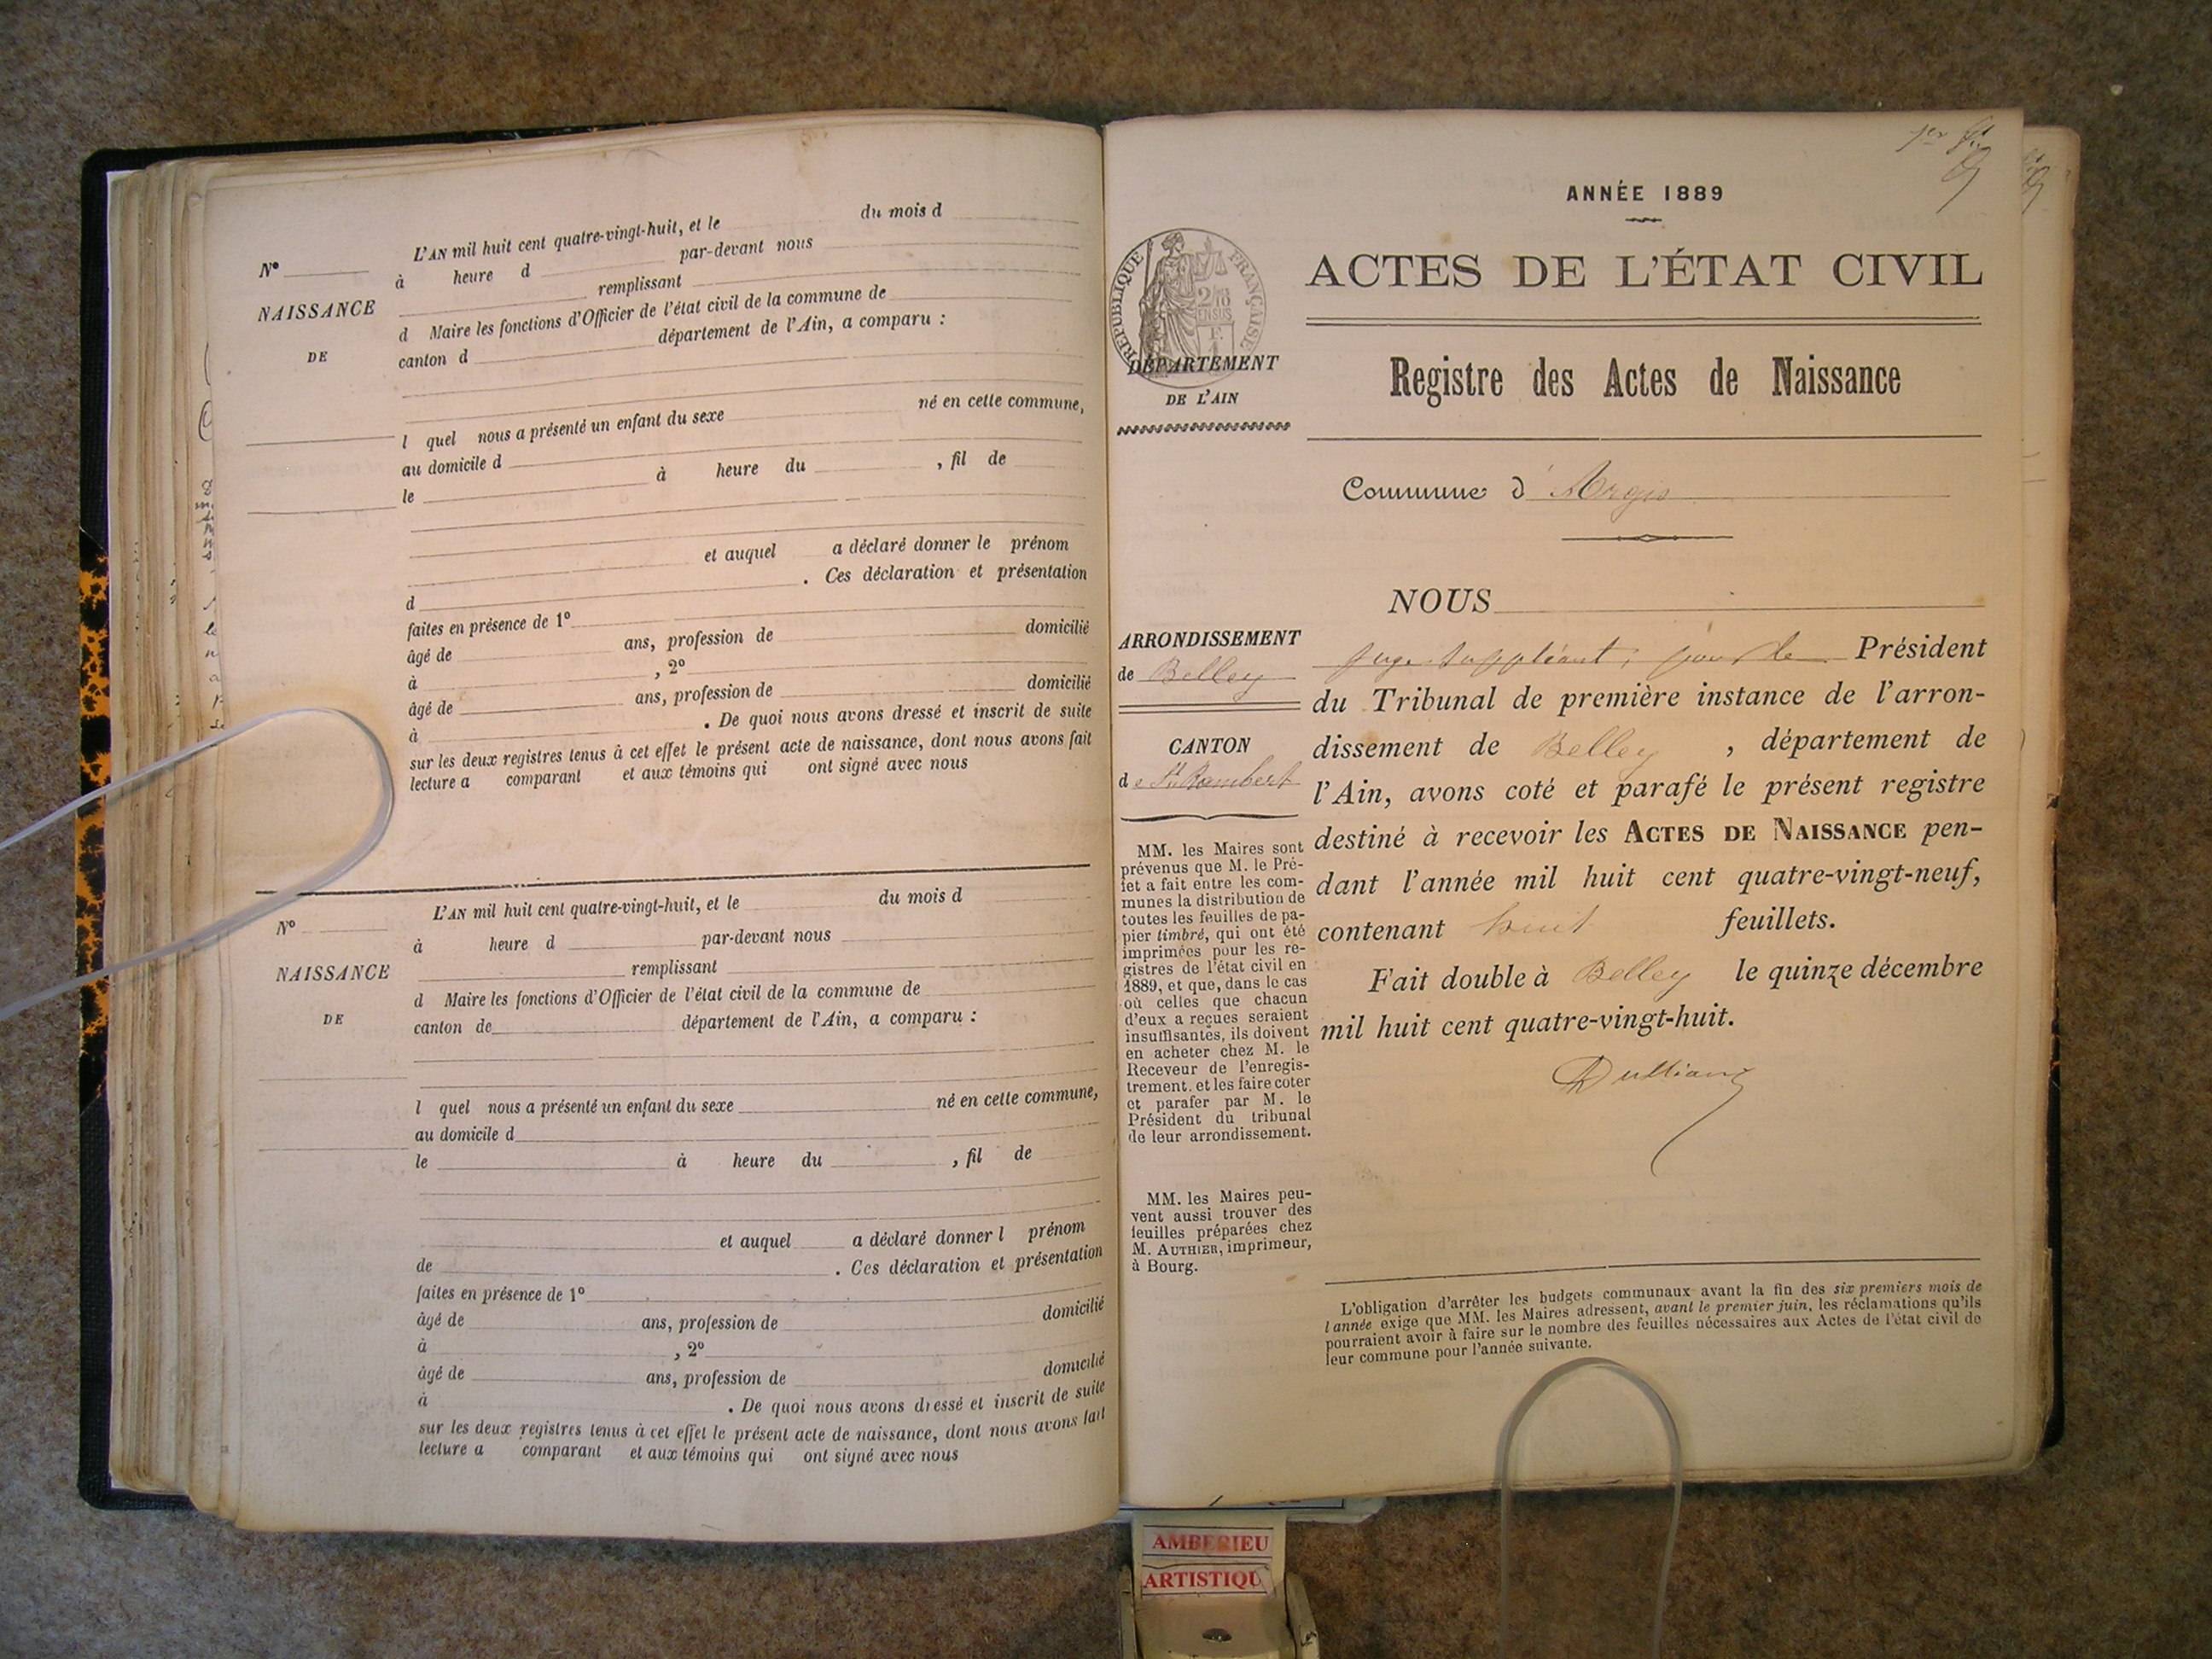 L'AN mil huit cent quatre-vingt-huit, et le du mois d
N° à heure d par-devant nous
remplissant
NAISSANCE d Maire les fonctions d'Officier de l'état civil de la commune de
DE canton d département de l'Ain, a comparu :
l quel nous a présenté un enfant du sexe né en cette commune,
au domicile d
le à heure du , fil de
et auquel a déclaré donner le prénom
d . Ces déclaration et présentation
faites en présence de 1°
âgé de ans, profession de domicilié
à , 2°
âgé de ans, profession de domicilié
à . De quoi nous avons dressé et inscrit de suite
sur les deux registres tenus à cet effet le présent acte de naissance, dont nous avons fait
lecture a comparant et aux témoins qui ont signé avec nous
L'AN mil huit cent quatre-vingt-huit, et le du mois d
N° à heure d par-devant nous
remplissant
NAISSANCE d Maire les fonctions d'Officier de l'état civil de la commune de
DE canton de département de l'Ain, a comparu :
l quel nous a présenté un enfant du sexe né en cette commune,
au domicile d
le à heure du , fil de
et auquel a déclaré donner l prénom
de . Ces déclaration et présentation
faites en présence de 1°
âgé de ans, profession de domicilié
à , 2°
âgé de ans, profession de domicilié
à . De quoi nous avons dressé et inscrit de suite
sur les deux registres tenus à cet effet le présent acte de naissance, dont nous avons fait
lecture a comparant et aux témoins qui ont signé avec nous
ANNÉE 1889
ACTES DE L'ÉTAT CIVIL
RÉPUBLIQUE FRANÇAISE
DÉPARTEMENT
DE L'AIN
Registre des Actes de Naissance
Commune d'Argis
ARRONDISSEMENT
de Belley
CANTON
de St Rambert
MM. les Maires sont
prévenus que M. le Pré-
fet a fait entre les com-
munes la distribution de
toutes les feuilles de pa-
pier timbré, qui ont été
imprimées pour les re-
gistres de l'état civil en
1889, et que, dans le cas
où celles que chacun
d'eux a reçues seraient
insuffisantes, ils doivent
en acheter chez M. le
Receveur de l'enregis-
trement, et les faire coter
et parafer par M. le
Président du tribunal
de leur arrondissement.
MM. les Maires peu-
vent aussi trouver des
feuilles préparées chez
M. AUTHIER, imprimeur,
à Bourg.
NOUS
juge suppléant, pour le Président
du Tribunal de première instance de l'arron-
dissement de Belley , département de
l'Ain, avons coté et parafé le présent registre
destiné à recevoir les ACTES DE NAISSANCE pen-
dant l'année mil huit cent quatre-vingt-neuf,
contenant huit feuillets.
Fait double à Belley le quinze décembre
mil huit cent quatre-vingt-huit.
L'obligation d'arrêter les budgets communaux avant la fin des six premiers mois de
l'année exige que MM. les Maires adressent, avant le premier juin, les réclamations qu'ils
pourraient avoir à faire sur le nombre des feuilles nécessaires aux Actes de l'état civil de
leur commune pour l'année suivante.
AMBERIEU
ARTISTIQU